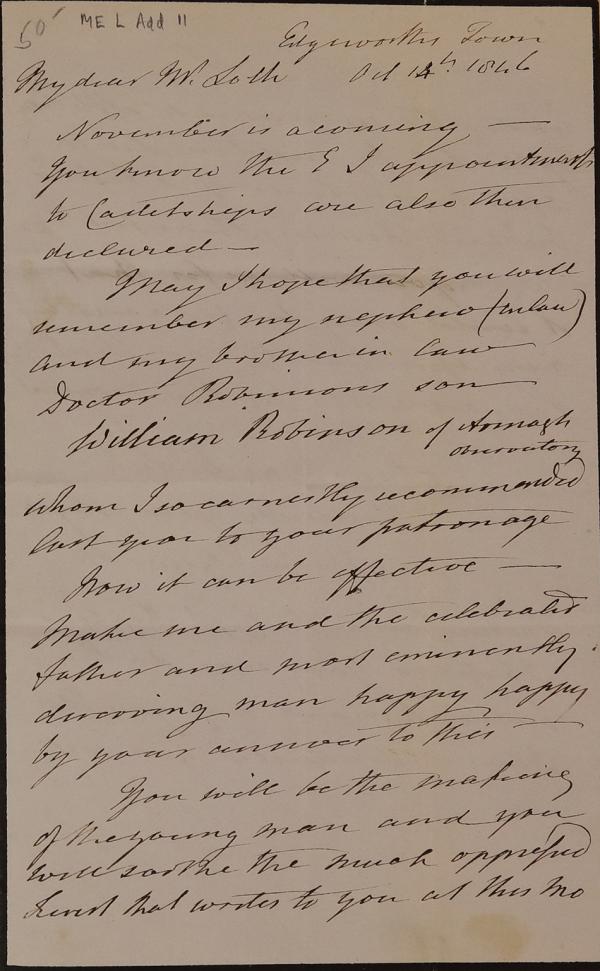 50 ME L Add 11
Edgeworths Town
My dear Mr. Loch Oct 14th 1846
November is a coming —
You know the E I appointments
to Cadetships are also then
declared —
May I hope that you will
remember my nephew (in law)
and my brother in law
Doctor Robinsons son
William Robinson of Armagh
observatory
whom I so earnestly recommended
last year to your patronage
Now it can be effective —
Make me and the celebrated
father and most eminently
deserving man happy happy
by your answer to this —
You will be the making
of the young man and you
will soothe the much oppressed
heart that writes to you at this mo